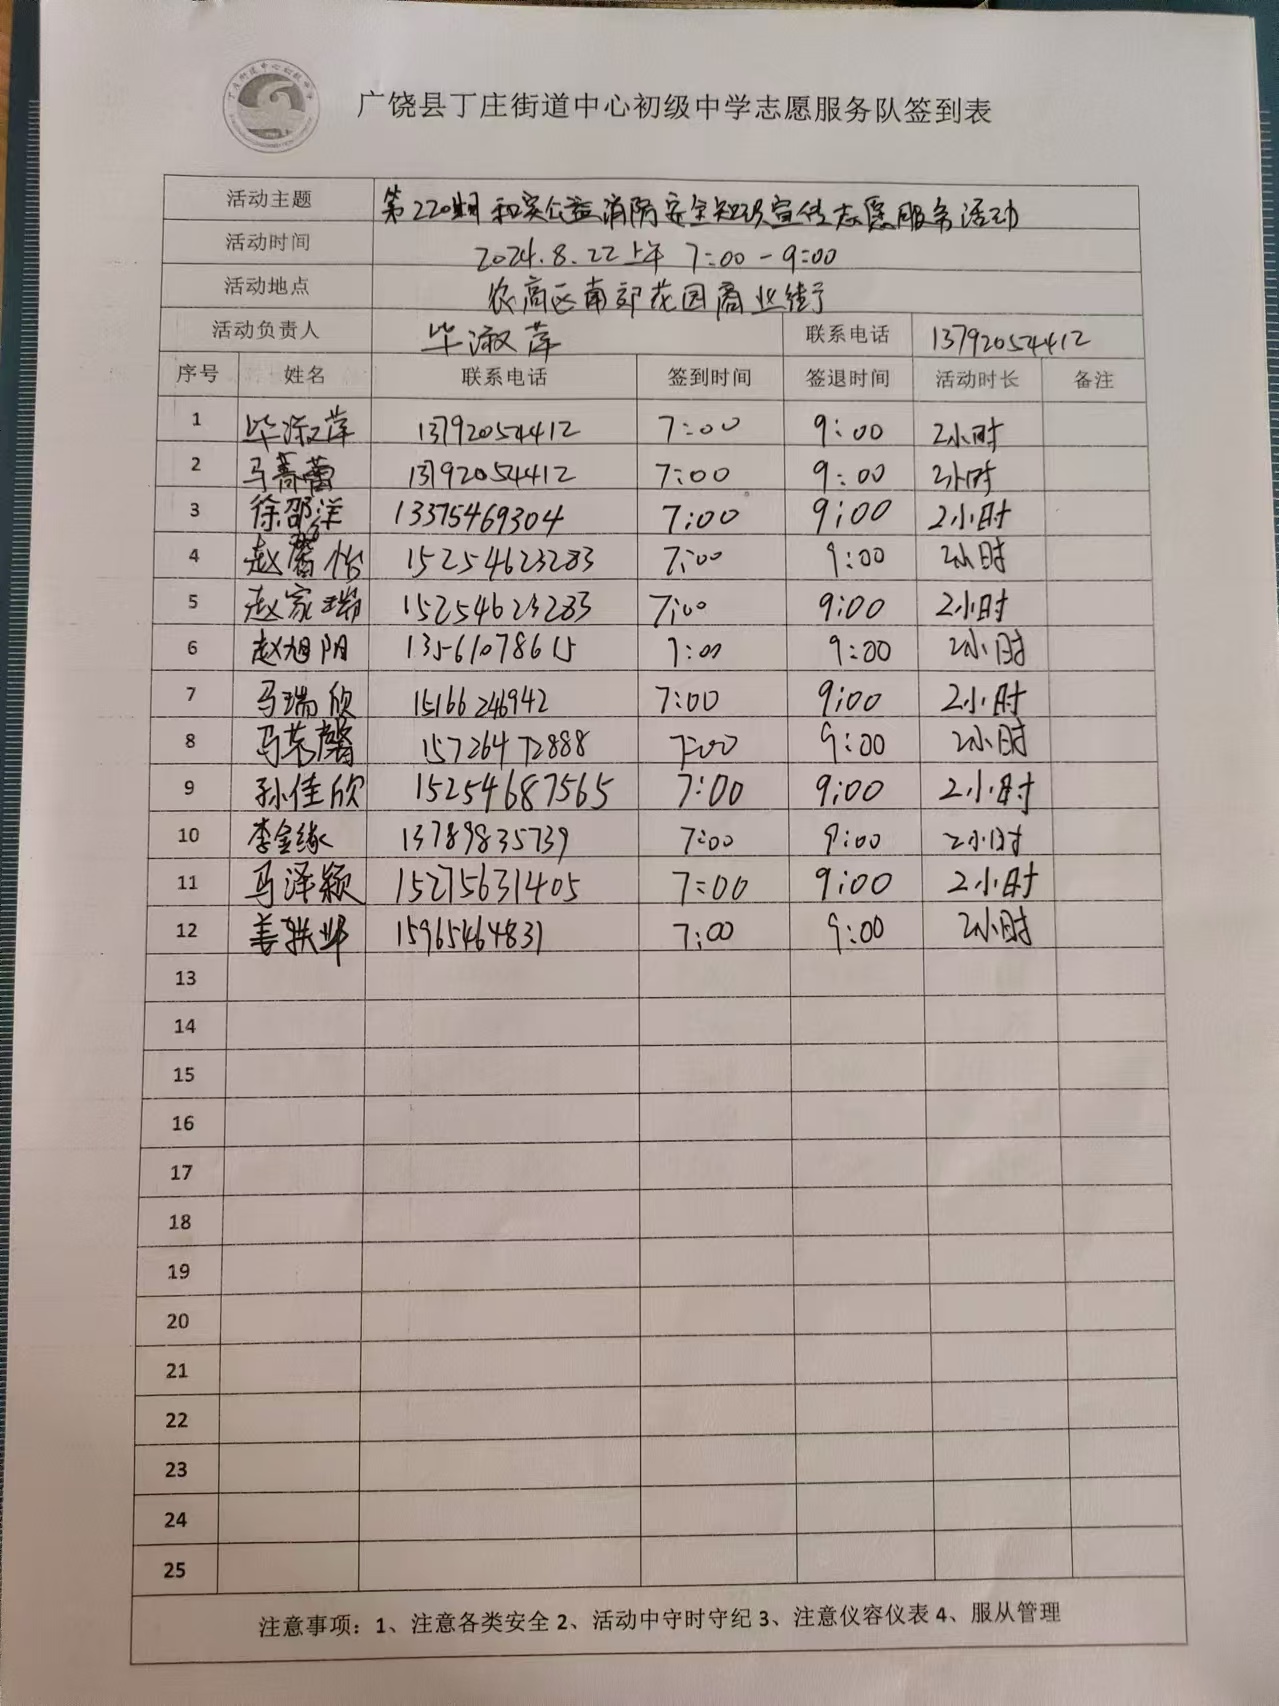 广饶县丁庄街道中心初级中学志愿服务队签到表
活动主题 第220期和实公益消防安全知识宣传志愿服务活动
活动时间 2024.8.22上午 7:00-9:00
活动地点 农高区南郊花园商业街
活动负责人 毕淑萍 联系电话 13792054412
序号 姓名 联系电话 签到时间 签退时间 活动时长 备注
1 毕淑萍 13792054412 7:00 9:00 2小时
2 马 蕾 13792054412 7:00 9:00 2小时
3 徐邵洋 13375469304 7:00 9:00 2小时
4 赵馨怡 15254623283 7:00 9:00 2小时
5 赵家瑞 15254623283 7:00 9:00 2小时
6 赵旭阳 13561078615 7:00 9:00 2小时
7 马瑞欣 15166246942 7:00 9:00 2小时
8 马茗馨 15726472888 7:00 9:00 2小时
9 孙佳欣 15254687565 7:00 9:00 2小时
10 李金缘 13789835739 7:00 9:00 2小时
11 马泽颖 15275631405 7:00 9:00 2小时
12 15965464831 7:00 9:00 2小时
13
14
15
16
17
18
19
20
21
22
23
24
25
注意事项：1、注意各类安全 2、活动中守时守纪 3、注意仪容仪表 4、服从管理